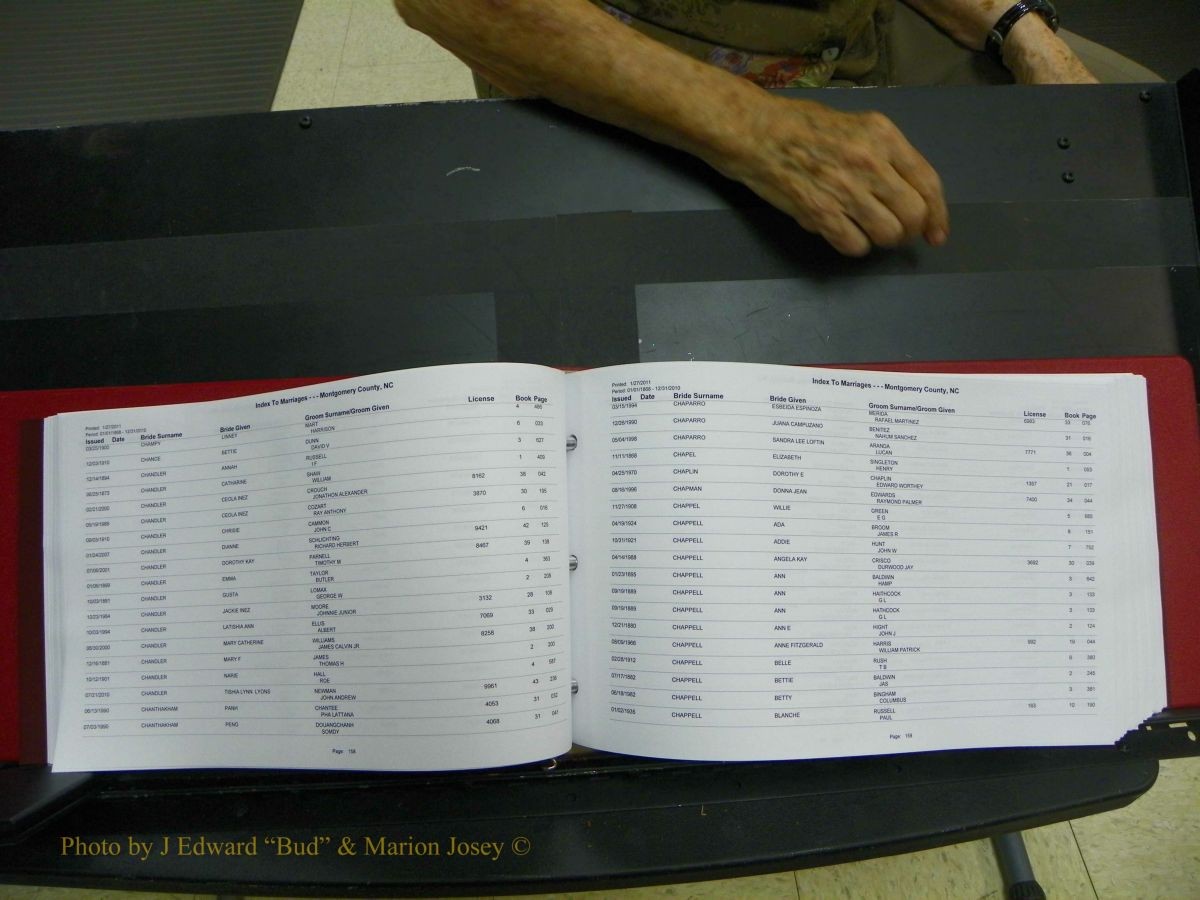 Index To Marriages - - - Montgomery County, NC
Printed 1/27/2011
Period: 01/01/1868 - 12/31/2010
Issued Date Bride Surname Bride Given Groom Surname/Groom Given License Book Page
CHAMPY LINNEY MART 4 486
HARRISON
12/03/1910 CHANCE BETTIE DUNN 6 033
DAVID V
12/14/1894 CHANDLER ANNAH RUSSELL 3 627
I F
CHANDLER CATHARINE SHAW 1 409
WILLIAM
CHANDLER CEOLA INEZ CROUCH 8162 38 042
JONATHON ALEXANDER
CHANDLER CEOLA INEZ COZART 3870 30 195
RAY ANTHONY
CHANDLER CHRISIE CAMMON 6 016
JOHN C
01/24/2007 CHANDLER DIANNE SCHLICHTING 9421 42 125
RICHARD HERBERT
CHANDLER DOROTHY KAY PARNELL 8467 39 138
TIMOTHY M
CHANDLER EMMA TAYLOR 4 363
BUTLER
CHANDLER GUSTA LOMAX 2 208
GEORGE W
10/23/1984 CHANDLER JACKIE INEZ MOORE 3132 28 108
JOHNNIE JUNIOR
10/03/1994 CHANDLER LATISHIA ANN ELLIS 7069 33 029
ALBERT
CHANDLER MARY CATHERINE WILLIAMS 8258 38 200
JAMES CALVIN JR
12/16/1881 CHANDLER MARY F JAMES 2 200
THOMAS H
10/12/1901 CHANDLER NARIE HALL 4 587
ROE
07/21/2010 CHANDLER TISHIA LYNN. LYONS NEWMAN 9961 43 238
JOHN ANDREW
06/13/1990 CHANTHAKHAM PANH CHANTEE 4053 31 032
PHA LATTANA
07/03/1990 CHANTHAKHAM PENG DOUANGCHANH 4068 31 041
SOMDY
Page: 158
Index To Marriages - - - Montgomery County, NC
Printed 1/27/2011
Period: 01/01/1868 - 12/31/2010
Issued Date Bride Surname Bride Given Groom Surname/Groom Given License Book Page
03/15/1994 CHAPARRO ESBEIDA ESPINOZA MERIDA 33 076
RAFAEL MARTINEZ
12/26/1990 CHAPARRO JUANA CAMPUZANO BENITEZ 31 018
NAHUM SANCHEZ
05/04/1998 CHAPARRO SANDRA LEE LOFTIN ARANDA 7771 36 004
LUCAN
11/11/1868 CHAPEL ELIZABETH SINGLETON 1 053
HENRY
04/25/1970 CHAPLIN DOROTHY E CHAPLIN 1367 21 017
EDWARD WORTHEY
08/16/1996 CHAPMAN DONNA JEAN EDWARDS 7400 34 044
RAYMOND PALMER
11/27/1908 CHAPPEL WILLIE GREEN 5
E G
04/19/1924 CHAPPELL ADA BROOM 8 151
JAMES R
10/31/1921 CHAPPELL ADDIE HUNT 7 752
JOHN W
04/14/1988 CHAPPELL ANGELA KAY CRISCO 3692 30 039
DURWOOD JAY
01/23/1895 CHAPPELL ANN BALDWIN 3 642
HAMP
09/19/1889 CHAPPELL ANN HAITHCOCK 3 133
G L
09/19/1889 CHAPPELL ANN HATHCOCK 3 133
G L
12/21/1880 CHAPPELL ANN E HIGHT 2 124
JOHN J
CHAPPELL ANNE FITZGERALD HARRIS 992 19 044
WILLIAM PATRICK
02/28/1912 CHAPPELL BELLE RUSH 6 380
T B
07/17/1882 CHAPPELL BETTIE BALDWIN 2 245
JAS
CHAPPELL BETTY BINGHAM 3 381
COLUMBUS
01/02/1935 CHAPPELL BLANCHE RUSSELL 163 10 190
PAUL
Page: 159
Photo by J Edward “Bud” & Marion Josey ©